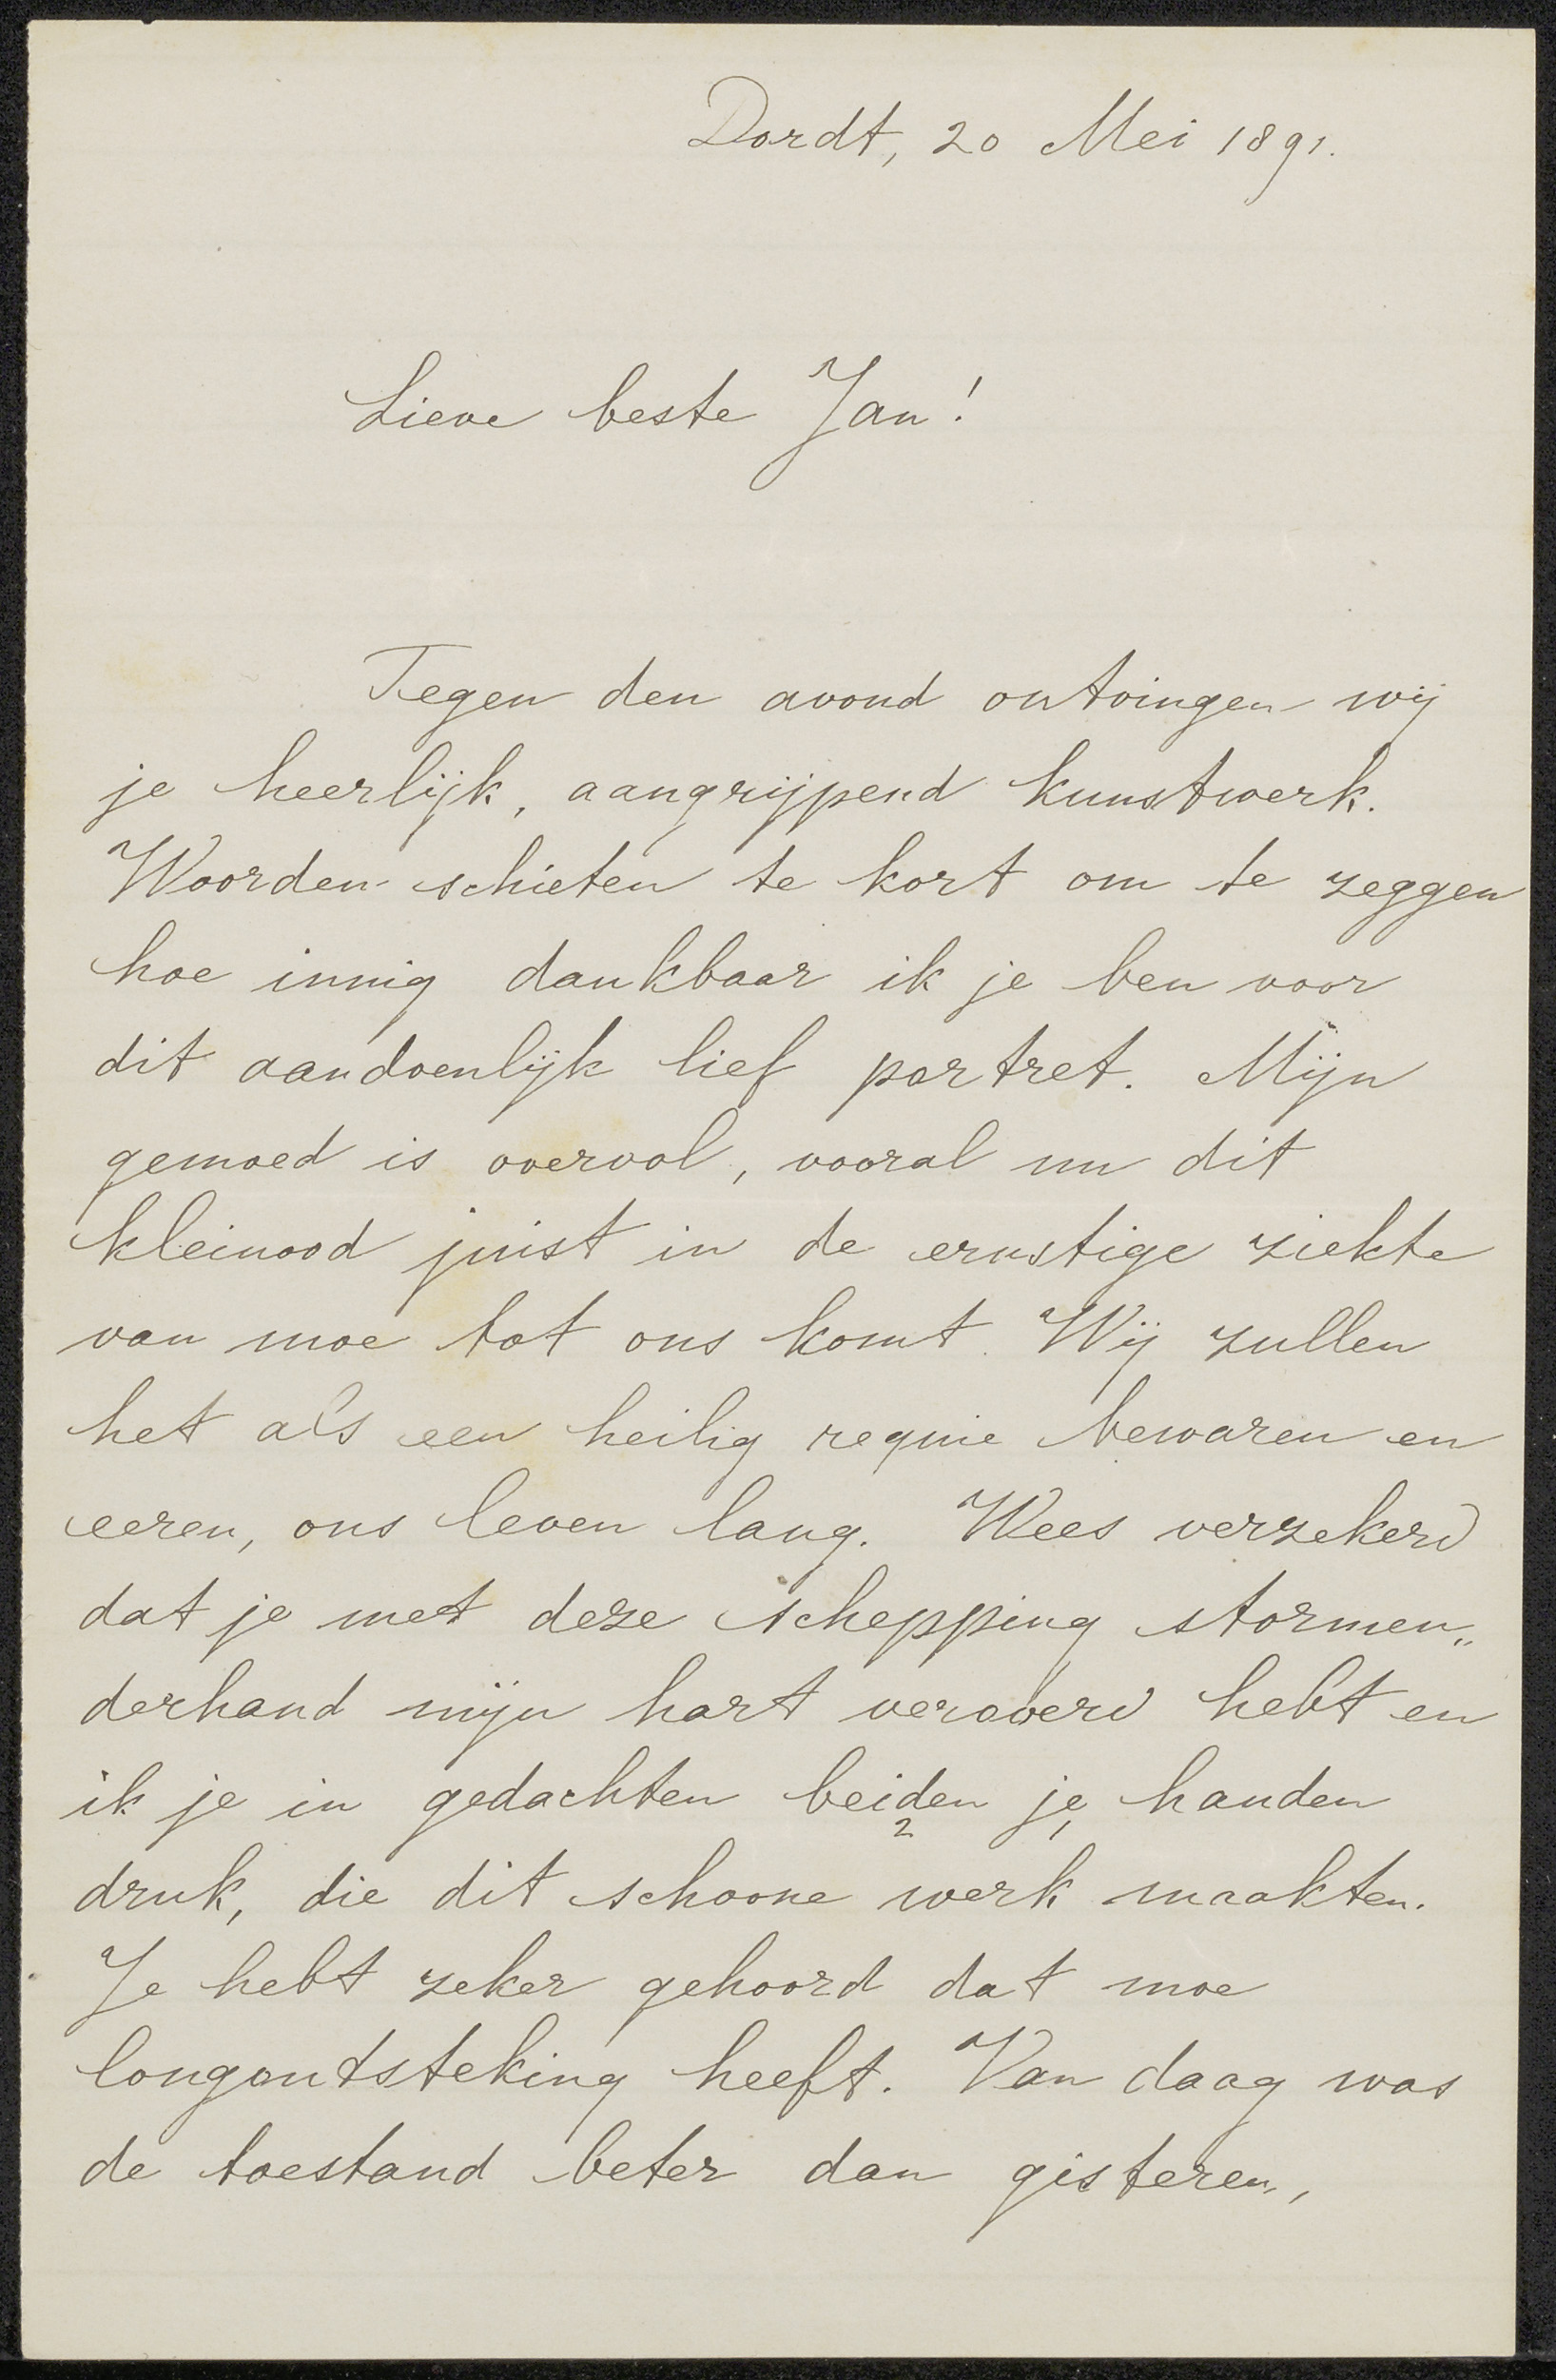 Dordt, 20 Mei 1891.
Lieve beste Jan!
Tegen den avond ontvingen wij
je heerlijk, aangrijpend kunstwerk.
Woorden schieten te kort om te zeggen
hoe innig dankbaar ik je ben voor
dit aandoenlijk lief portret. Mijn
gemoed is overvol, vooral nu dit
kleinood juist in de ernstige ziekte
van moe tot ons komt. Wij zullen
het als een heilig requie bewaren en
eeren, ons leven lang. Wees verzekerd
dat je met deze schepping stormen„
derhand mijn hart veroverd hebt en
ik je in gedachten beiden je handen
2 1
druk, die dit schoone werk maakten.
Je hebt zeker gehoord dat moe
longontsteking heeft. Van daag was
de toestand beter dan gisteren,